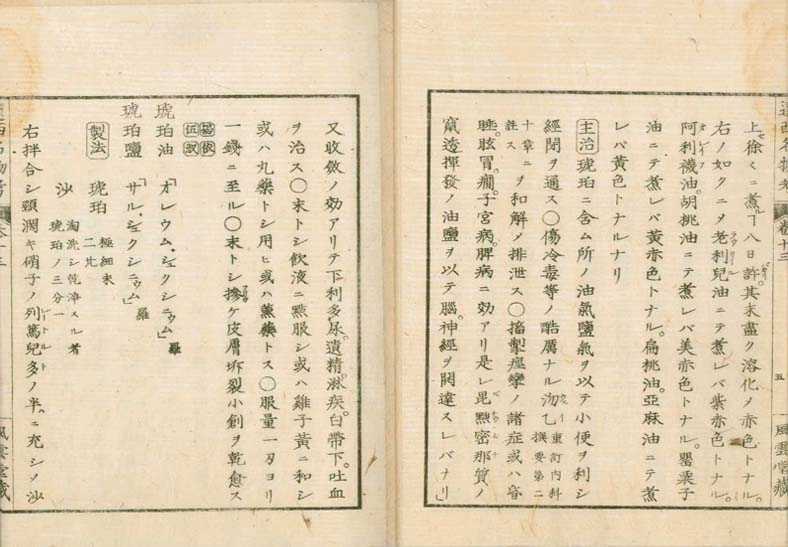 上徐くニ煮ルヿ八日許其末盡ク溶化ヲ赤色トナル。
右ノ如クニヲ老利兒油ニテ煮レバ紫赤色トナル。
阿利襪油。胡桃油ニテ煮レバ美赤色トナル。罌粟子
油ニテ煮レバ黄赤色トナル。扁桃油。亞麻油ニテ煮
レバ黄色トナルナリ
主治 琥珀ニ含ム所ノ油氣鹽氣ヲ以テ小便ヲ利シ
經閉ヲ通ス○傷冷毒等ノ酷厲ナル沕乙 重訂内科撰要第二
十章ニ註ス ヲ和解ノ排泄ス○搐掣痙攣ノ諸症或ハ昏
睡。眩冒。癇。子宮病。脾病ニ効アリ是レ毘㸃密那質ノ
竄透揮發ノ油鹽ヲ以テ腦。神經ヲ開達スレバナリ
遠西名物考 卷十三
五
風雲堂藏
又收斂ノ効アリテ下利多尿。遺精。淋疾。白帶下。吐血
ヲ治ス○末トシ飲液ニ㸃服シ或ハ雞子黄ニ和シ
或ハ丸藥トシ用ヒ或ハ薫藥トス○服量一刃ヨリ
一錢ニ至ル○末トシ摻ケ皮膚坼裂小創ヲ乾愈ス
琥珀油 「オレウム・シュクシニウム」羅
琥珀鹽 「サル・シュクシニウム」羅
製法 琥珀 極細末 二片
沙 淘洗シ乾淨スル者 琥珀ノ三分一
右拌合シ頸濶キ硝子ノ列篤兒多ノ半ニ充シノ沙
遠西名物考 卷十三
風雲堂藏